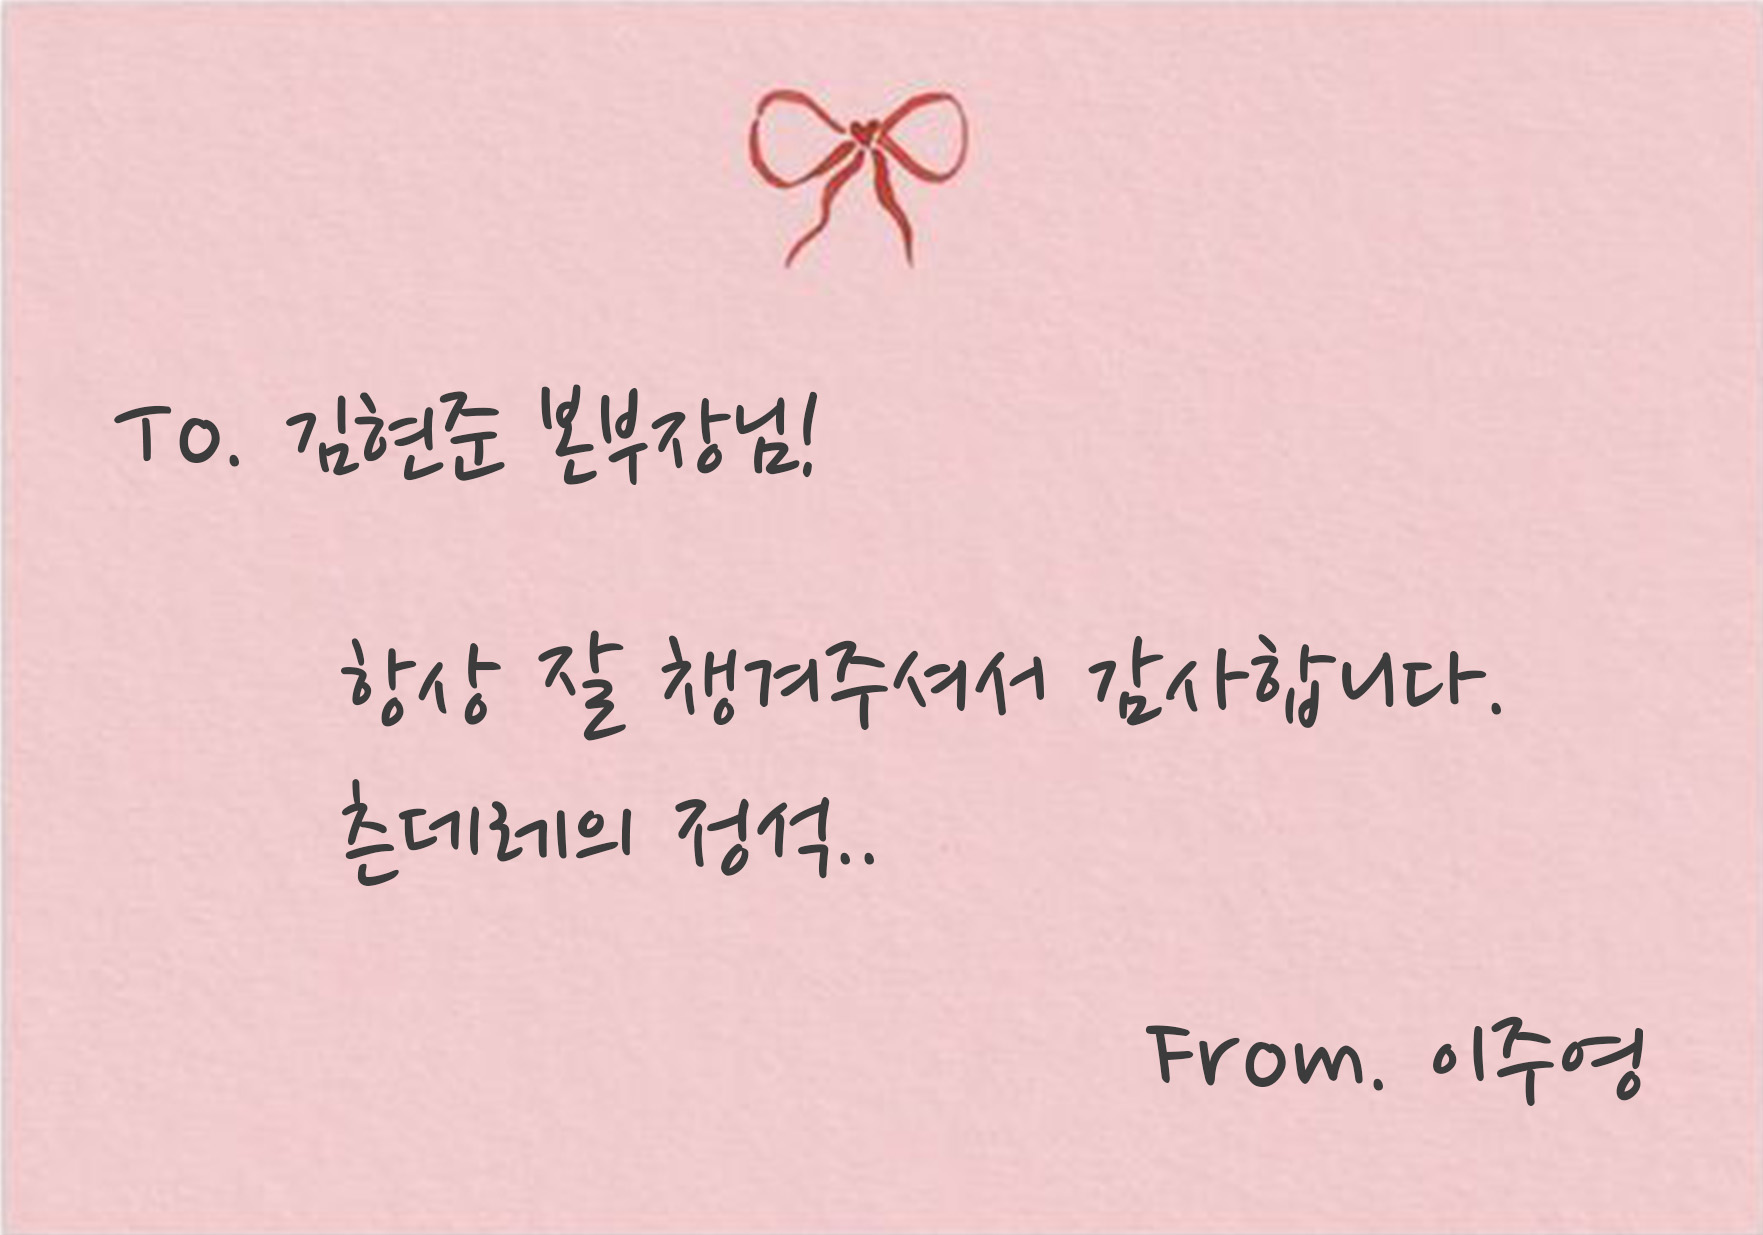 To. 김현준 본부장님!
항상 잘 챙겨주셔서 감사합니다.
츤데레의 정석..
From. 이주영